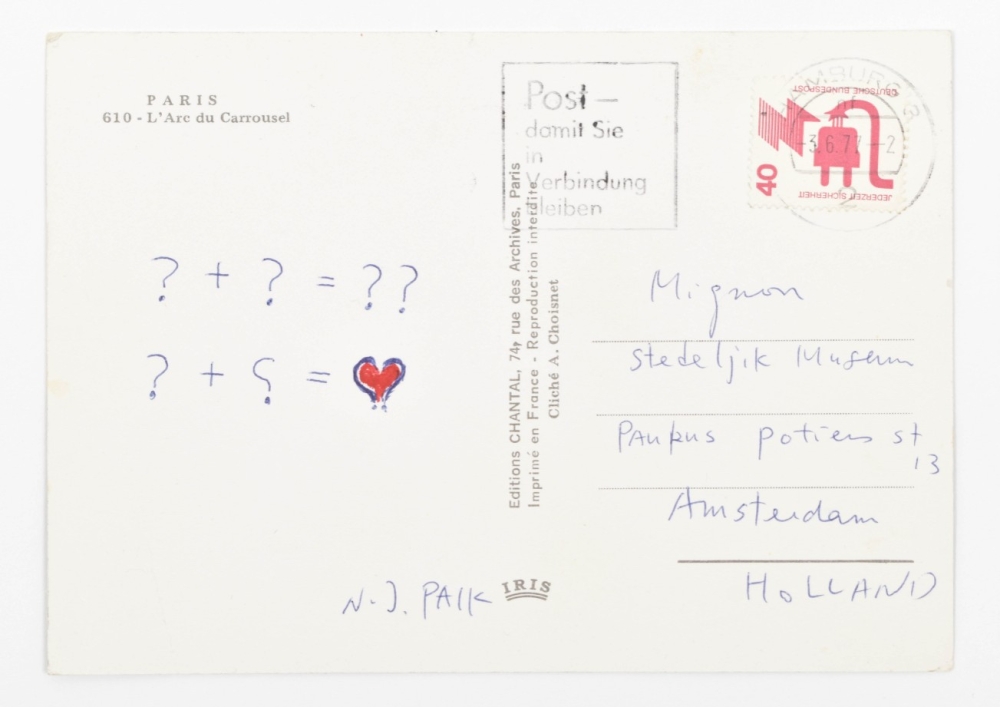 PARIS
610 - L'Arc du Carrousel
Post –
damit Sie
in
Verbindung
bleiben
HAMBURG 13
-3.6.77--2
2
DEUTSCHE BUNDESPOST
JEDERZEIT SICHERHEIT
40
? + ? = ??
? + ⸮ = ❤
Editions CHANTAL, 74, rue des Archives, Paris
Imprimé en France - Reproduction interdite
Cliché A. Choisnet
Mignon
Stedeljik Museum
PAupus potiers st
13
Amsterdam
HOLLAND
N. J. PAIK
IRIS